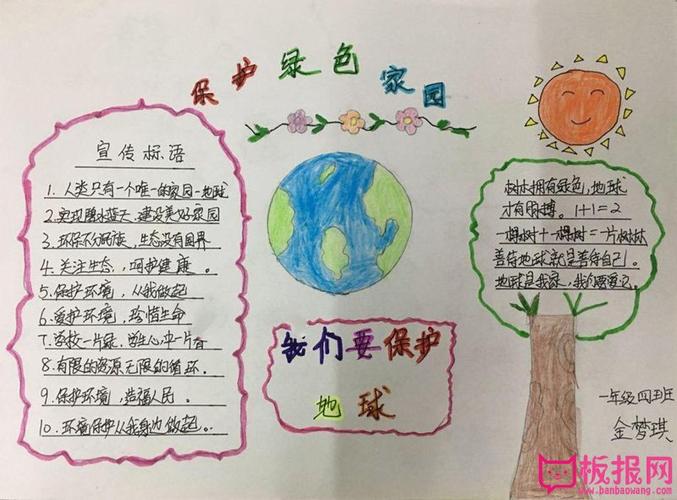 保护绿色家园
宣传标语
1. 人类只有一个唯一的家园一地球
2. 实现碧水蓝天,建设美好家园
3. 环保不分民族,生态没有国界
4. 关注生态,呵护健康。
5. 保护环境,从我做起
6. 爱护环境,珍惜生命
7. 学校一片绿,学生心中一片
8. 有限的资源无限的循环.
9. 保护环境,造福人民.
10. 环境保护从我身边做起.
我们要保护
地球
树木拥有绿色,地球
才有脉搏。1+1=2
一棵树+一棵树=一片树林
善待地球就是善待自己.
地球是我家,我们要爱它.
一年级四班
金梦琪
板报网
www.banbaowang.com